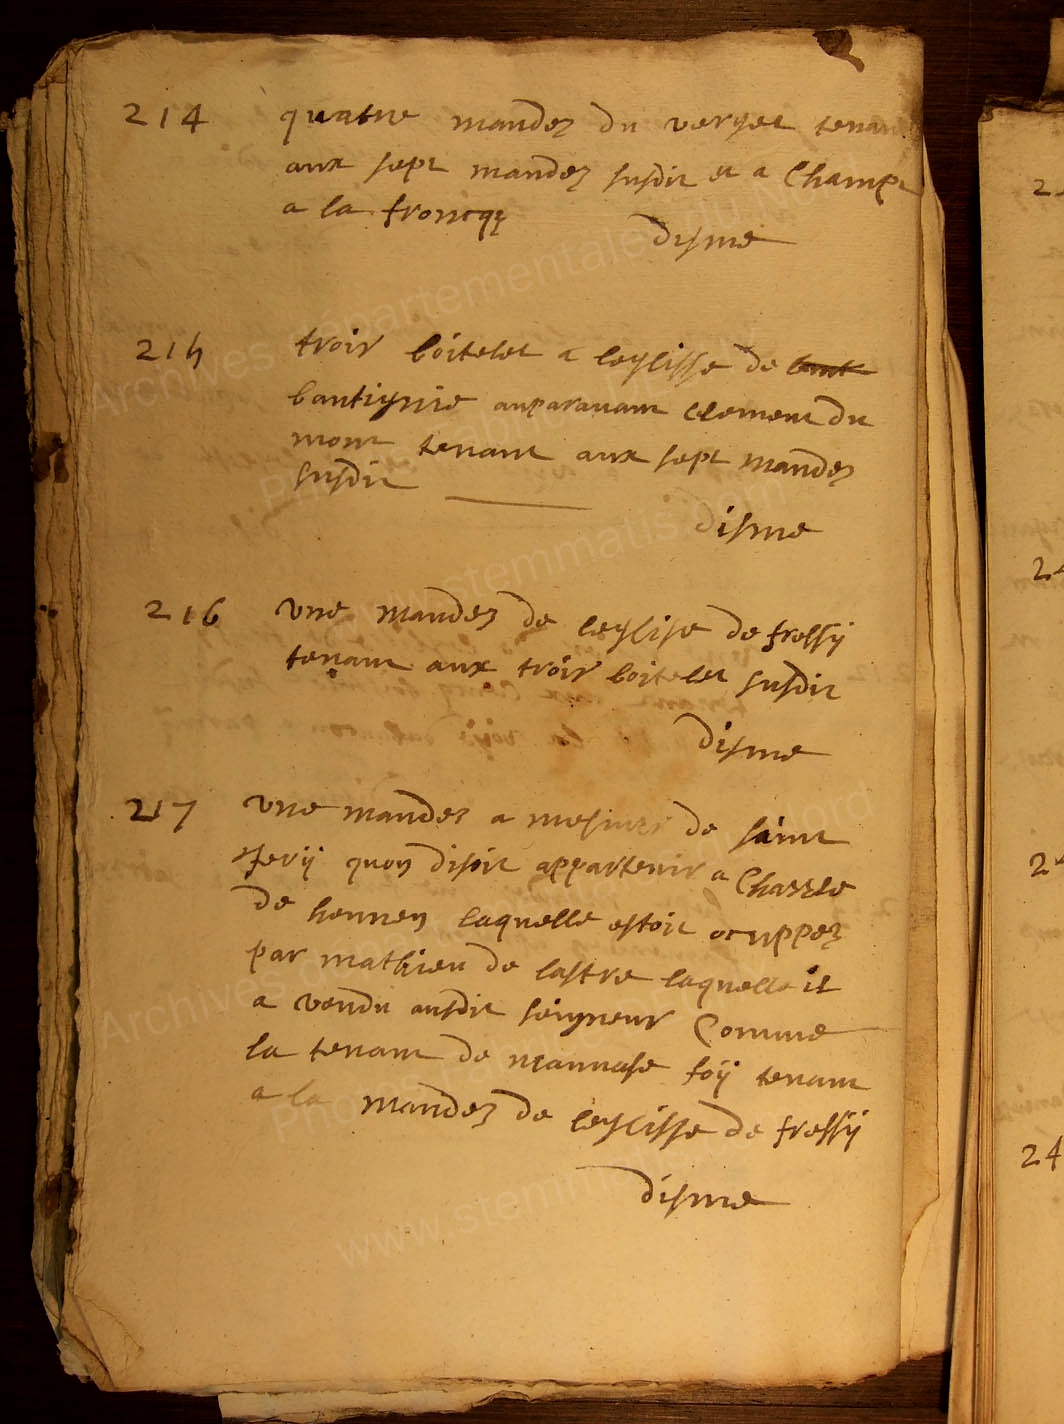 214 quatre mandez du verger tenant
aux sept mandez susdit et a Champt
a la froncq
disme
215 trois boitelet a leglisse de bant
bantignie auparavant clement du
mont tenant aux sept mandez
susdit
disme
216 une mandez de leglise de fressij
tenant aux trois boitelet susdit
disme
217 une mandez a mesiurs de saint
gerij quon disoit appartenir a Charrle
de hennen laquelle estoit ocuppez
par mathieu de lastre laquelle il
a vendu ausdit seigneur Comme
la tenant de mannase foij tenant
a la mandez de leglisse de fressij
disme
Archives départementales du Nord
www.stemmatis.com
Archives départementales du Nord
www.stemmatis.com